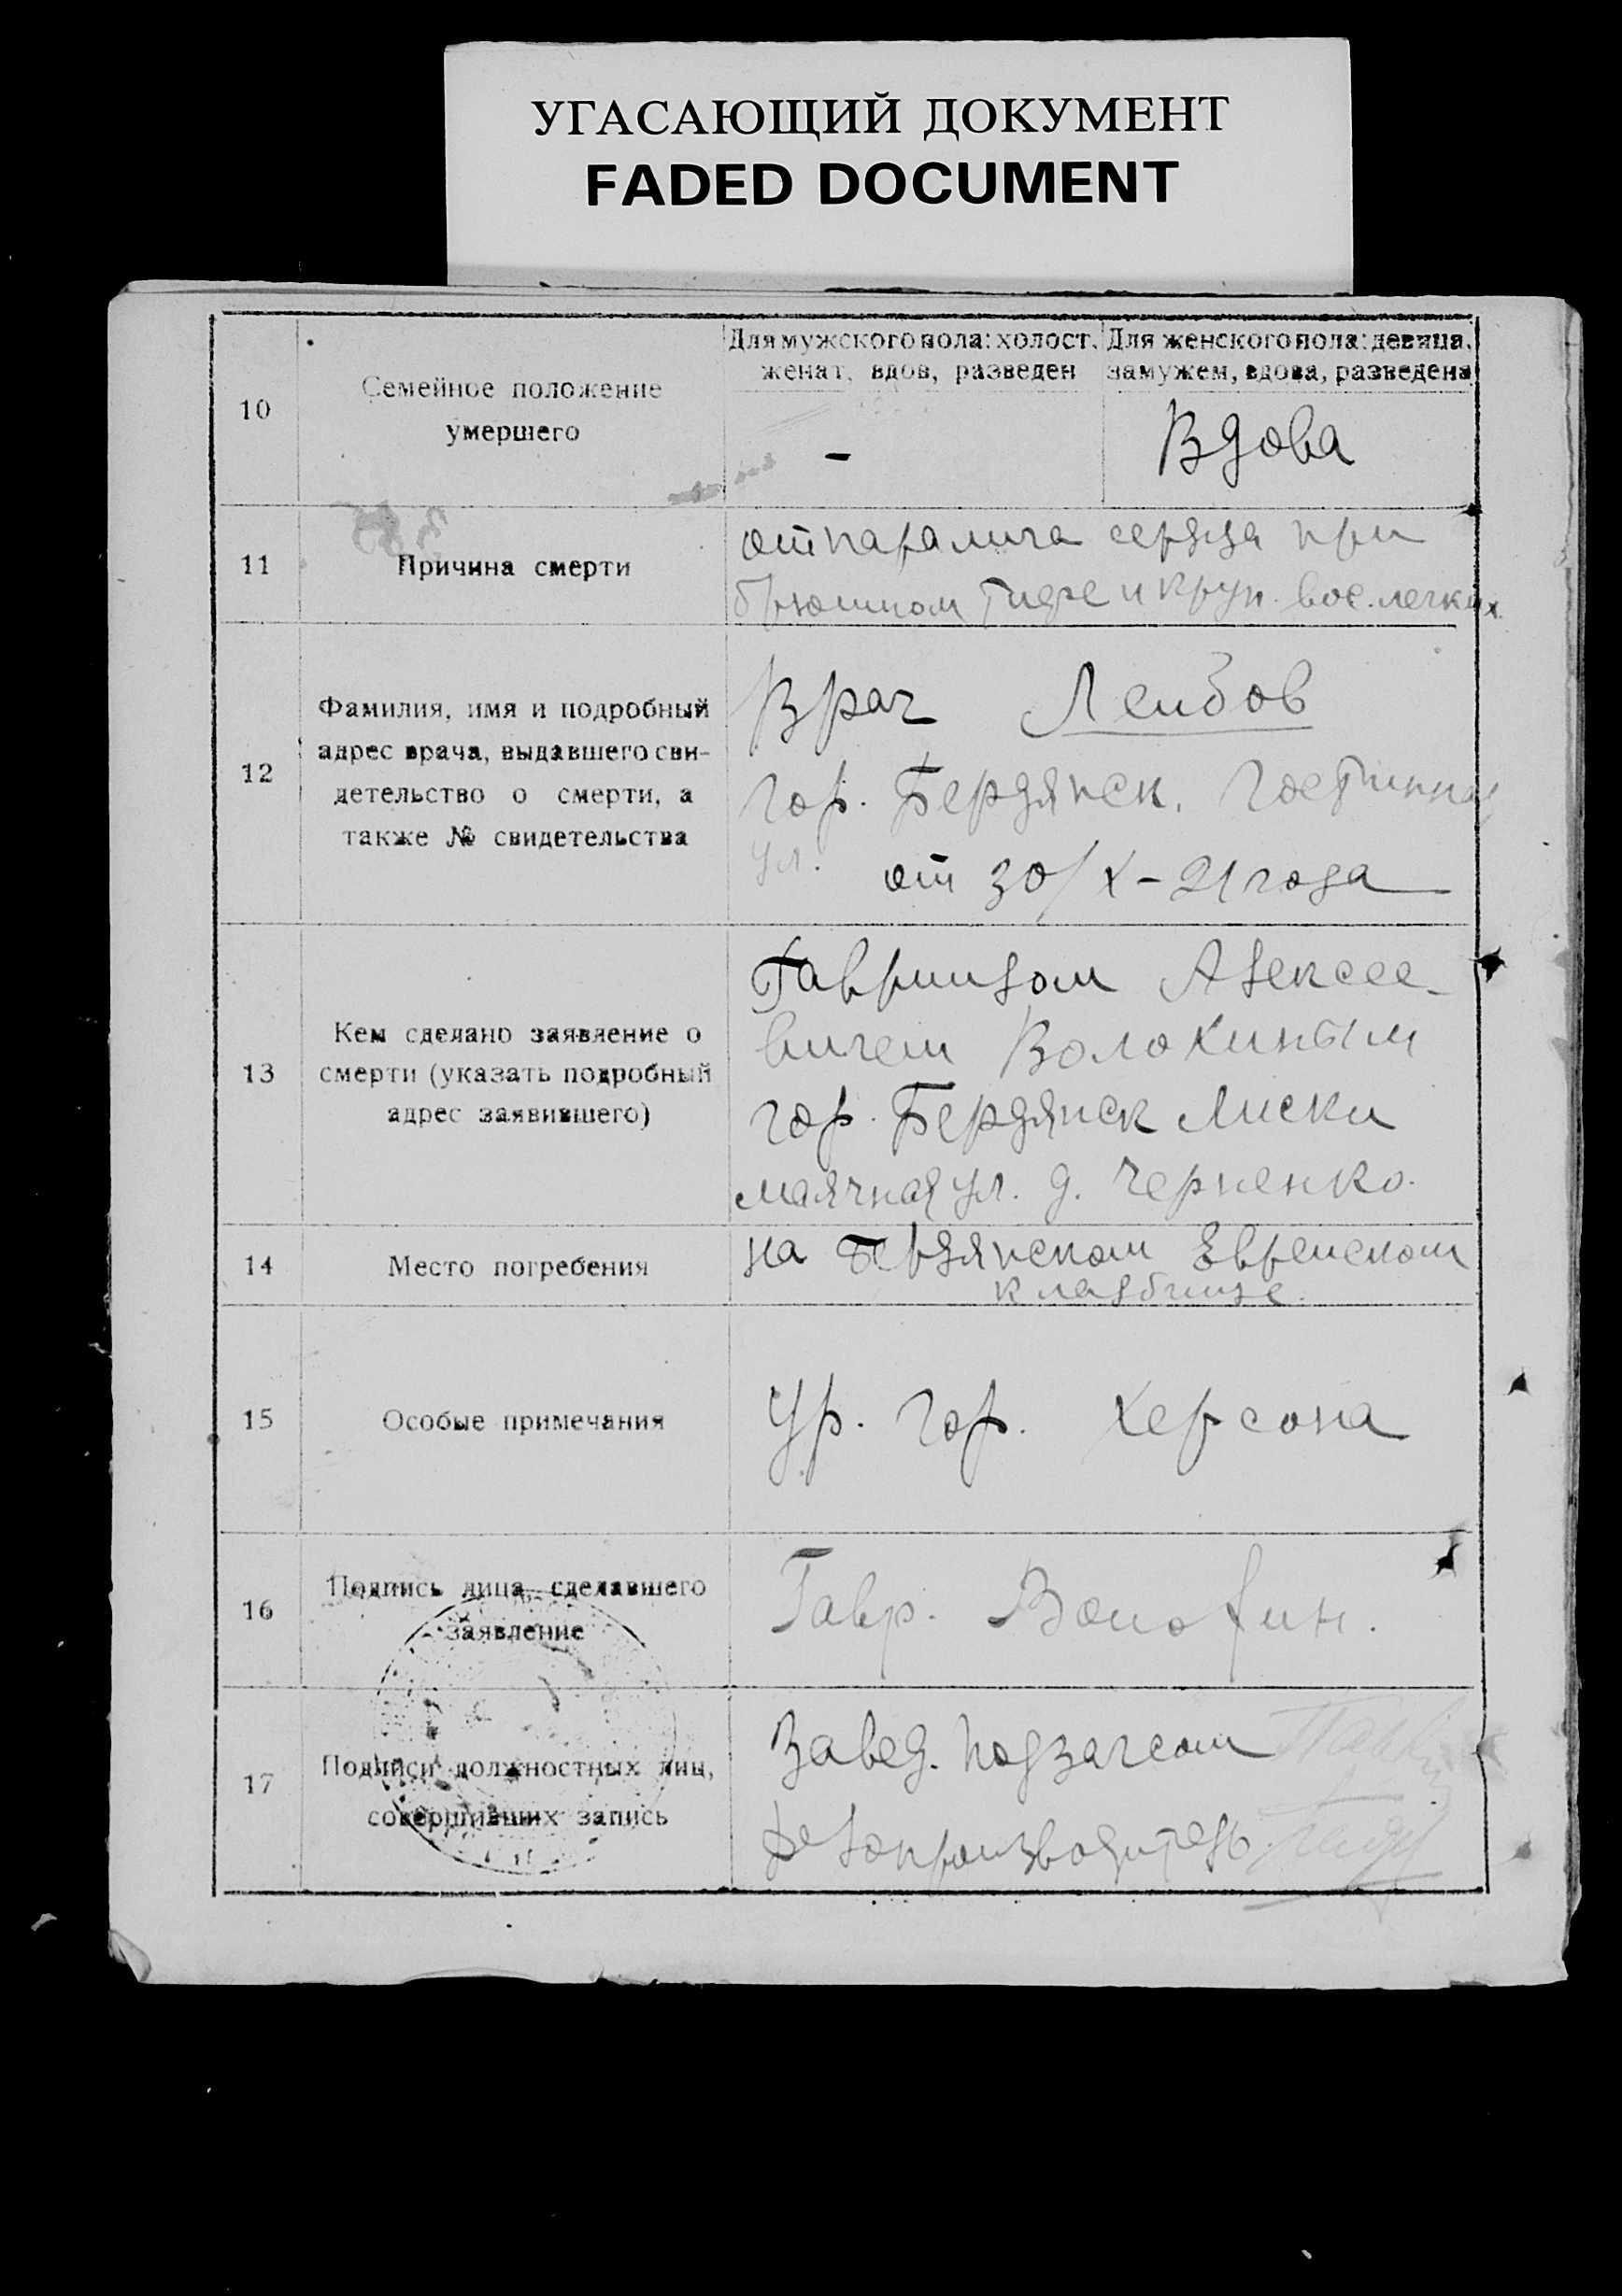 УГАСАЮЩИЙ ДОКУМЕНТ
FADED DOCUMENT
10
Семейное положение
умершего
Для мужского пола: холост,
женат, вдов, разведен
-
Для женского пола: девица,
замужем, вдова, разведена
Вдова
11
Причина смерти
от паралича сердца при
брюшном тифе и круп. вос. легких
12
Фамилия, имя и подробный
адрес врача, выдавшего сви-
детельство о смерти, а
также № свидетельства
Врач Лейбов
Гор. Бердянск. Гостинная
ул. от 30/X-21 года
13
Кем сделано заявление о
смерти (указать подробный
адрес заявившего)
Гавриилом Алексее-
вичем Волокиным
гор. Бердянск Лиски
маячная ул. д. Черненко.
14
Место погребения
на Бердянском Еврейском
кладбище.
15
Особые примечания
Ур. гор. Херсона
16
Подпись лица, сделавшего
заявление
Гавр.
17
Подписи должностных лиц,
совершивших запись
Завед. подзагсом
Делопроизводитель